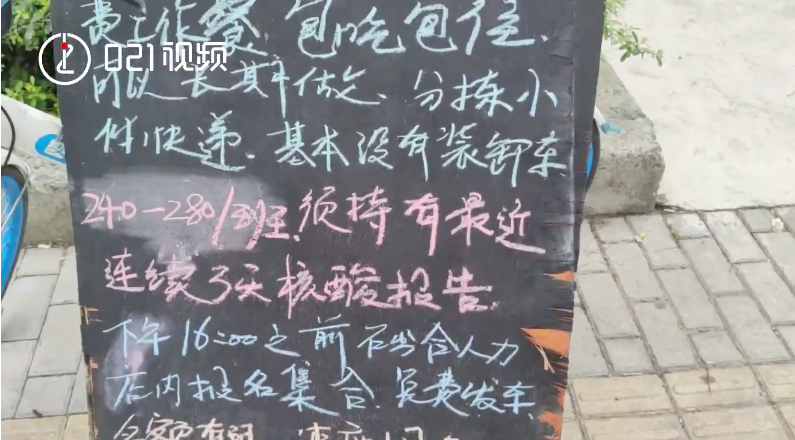 021视频
费工作餐，包吃包住，
可以长期做、分拣小
件快递、基本没有装卸车
240-280/班，须持有最近
连续3天核酸报告
下午16:00之前 合人力
店内报名集合、免费发车
名额有限